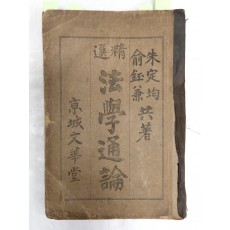 朱定均
兪鈺兼 共著
精選
法學通論
京城文華堂